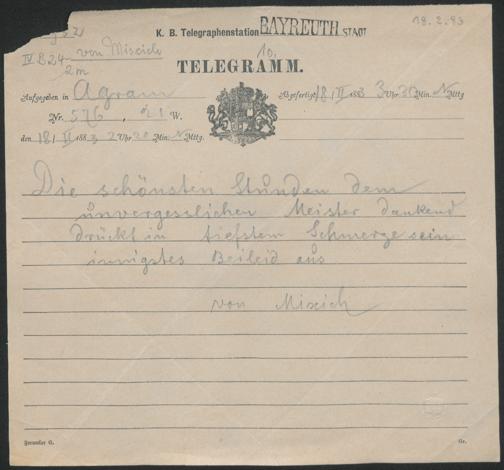 18.2.83
K. B. Telegraphenstation BAYREUTH STADT
IV B 24 von Miscich
2m
10.
TELEGRAMM.
Aufgegeben in Agram
Abgefertigt 18/II 1883 3 Uhr 30 Min. N Mttg
Nr. 576, 21 W.
den 18/II 1883 2 Uhr 20 Min. N Mttg.
Die schönsten Stunden dem
unvergesslichen Meister dankend
drückt in tiefstem Schmerze sein
innigstes Beileid aus
von Mixich
Formular G.
Gr.